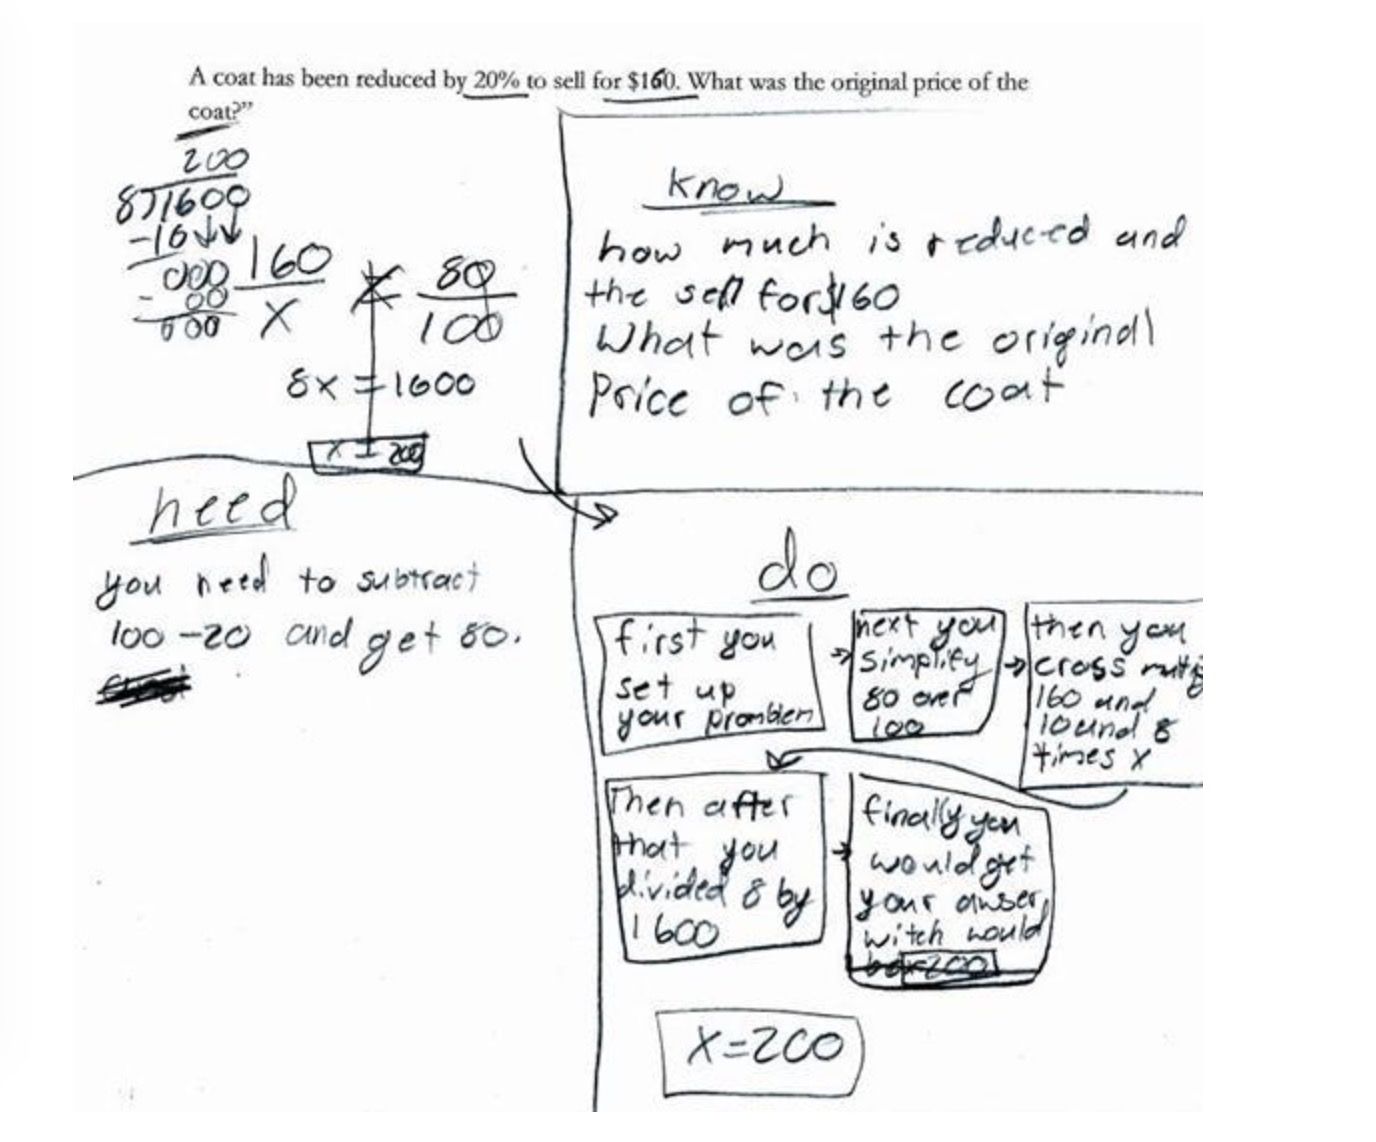 A coat has been reduced by 20% to sell for $160. What was the original price of the
coat?"
200
8)1600
-16↓↓
000
- 00
000
160/X = 80/100
8x = 1600
x = 200
Know
how much is reduced and
the sell for $160
What was the original
Price of the coat
need
you need to subtract
100 -20 and get 80.
do
first you
set up
your promblem
next you
simplify
80 over
100
then you
cross
160 and
10 und 8
times x
Then after
that you
divided 8 by
1600
finally you
would get
your anser,
witch would
be x=200
X=200